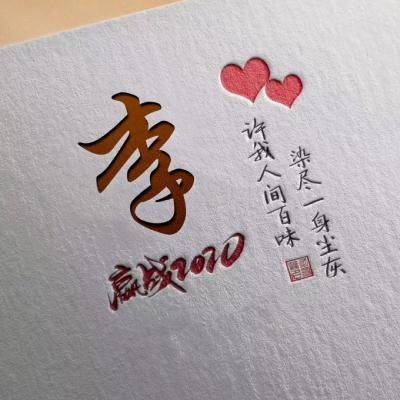 李
赢战2020
许我人间百味
染尽一身尘灰